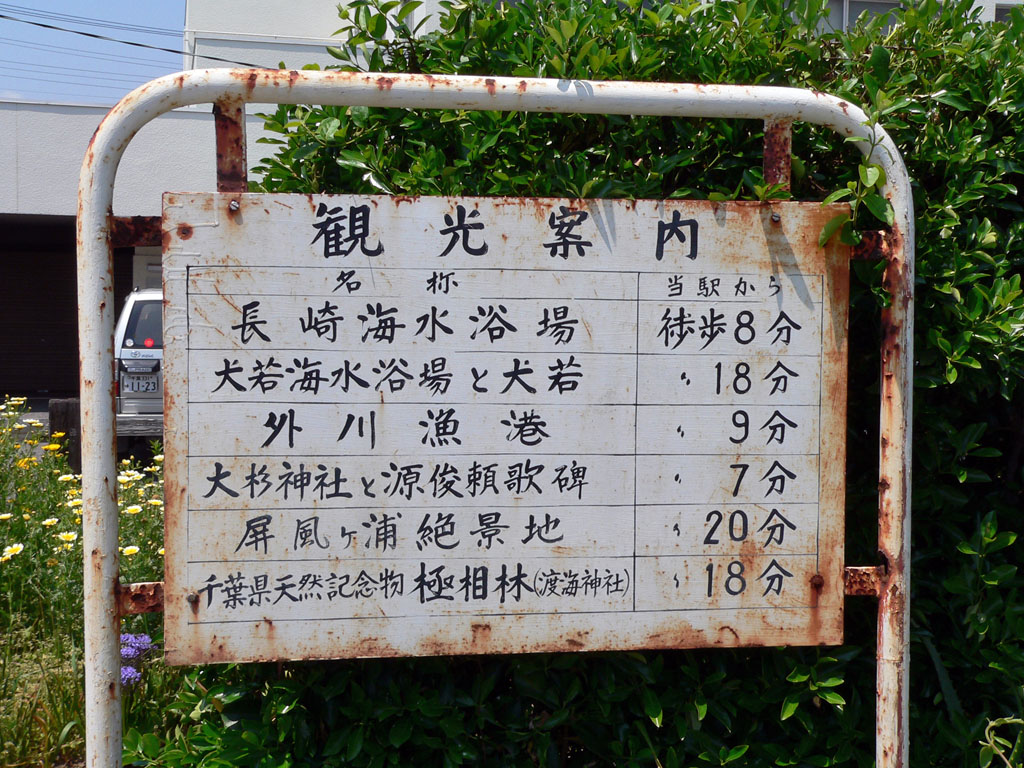 観光案内
名称 当駅から
長崎海水浴場 徒歩8分
犬若海水浴場と犬若 〃 18分
外川漁港 〃 9分
大杉神社と源俊頼歌碑 〃 7分
屏風ヶ浦絶景地 〃 20分
千葉県天然記念物 極相林(渡海神社) 〃 18分
11-23